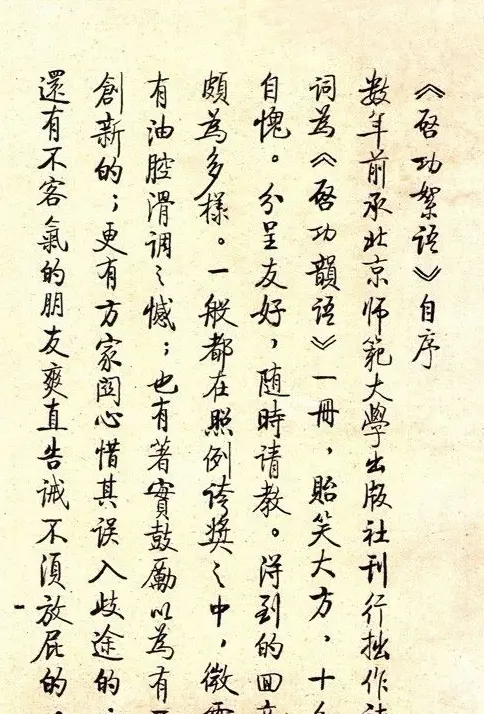 《啓功絮語》自序
数年前承北京师範大學出版社刊行拙作詩
词為《啓功韻語》一冊，貽笑大方，十分
自愧。分呈友好，随時请教。得到的回音
頗為多樣。一般都在照例誇奨之中，微露
有油腔滑调之憾；也有著實鼓勵以為有
創新的；更有方家関心惜其误入歧途的；
還有不客氣的朋友爽直告诫不须放屁的，